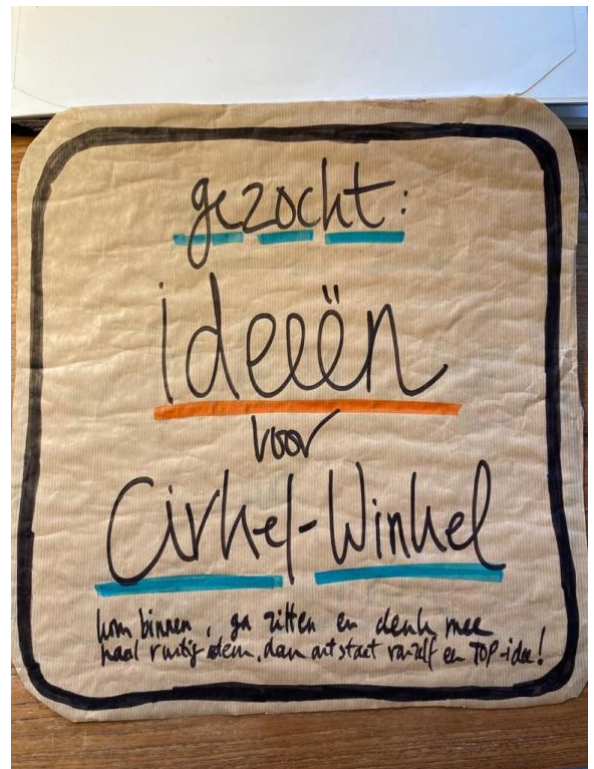 gezocht:
ideeën
voor
Cirkel-Winkel
kom binnen, ga zitten en denk mee
haal rustig adem, dan ontstaat vanzelf en TOP-idee!